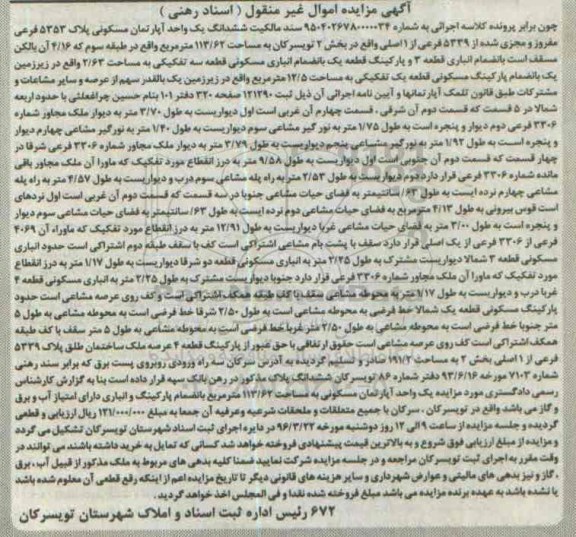 آگهی مزایده اموال غیر منقول ( اسناد رهنی )
چون برابر پرونده کلاسه اجرائی به شماره ۹۵۰۴۰۲۶۷۸۰۰۰۰۳۴ سند مالکیت ششدانگ یک واحد آپارتمان مسکونی پلاک ۵۳۵۳ فرعی
مفروز و مجزی شده از ۵۳۳۹ فرعی از ۱ اصلی واقع در بخش ۲ تویسرکان به مساحت ۱۱۳/۶۲ مترمربع واقع در طبقه سوم که ۴/۱۶ آن بالکن
مسقف است بانضمام انباری قطعه ۳ و پارکینگ قطعه یک بانضمام انباری مسکونی قطعه سه تفکیکی به مساحت ۲/۶۳ واقع در زیرزمین
یک بانضمام پارکینگ مسکونی قطعه یک تفکیکی به مساحت ۱۲/۵ مترمربع واقع در زیرزمین یک بالقدر سهم از عرصه و سایر مشاعات و
مشترکات طبق قانون تملک آپارتمانها و آیین نامه اجرائی آن ذیل ثبت ۱۲۱۲۹۰ صفحه ۳۲۰ دفتر ۱۰۱ بنام حسین چراغعلی با حدود اربعه
شمالا در ۵ قسمت که قسمت دوم آن شرقی ، قسمت چهارم آن غربی است اول دیواریست به طول ۳/۷۰ متر به دیوار ملک مجاور شماره
۳۳۰۶ فرعی دوم دیوار و پنجره است به طول ۱/۷۵ متر به نور گیر مشاعی سوم دیواریست به طول ۱/۴۰ متر به نورگیر مشاعی چهارم دیوار
و پنجره است به طول ۱/۹۲ متر به نور گیر مشاعی پنجم دیواریست به طول ۳/۷۹ متر به دیوار ملک مجاور شماره ۳۳۰۶ فرعی شرقا در
چهار قسمت که قسمت دوم آن جنوبی است اول دیواریست به طول ۹/۵۸ متر به درز انقطاع مورد تفکیک که ماورا آن ملک مجاور باقی
مانده شماره ۳۳۰۶ فرعی قرار دارد دوم دیواریست به طول ۲/۵۳ متر به راه پله مشاعی سوم درب و دیواریست به طول ۴/۵۷ متر به راه پله
مشاعی چهارم نرده ایست به طول ۶۳/ سانتیمتر به فضای حیات مشاعی جنوبا در سه قسمت که قسمت دوم آن غربی است اول نردهای
است قوس بیرونی به طول ۴/۱۳ مترمربع به فضای حیات مشاعی دوم نرده ایست به طول ۶۳/ سانتیمتر به فضای حیات مشاعی سوم دیوار
و پنجره است به طول ۳/۰۰ متر به فضای حیات مشاعی غربا دیواریست به طول ۱۲/۹۱ متر به درز انقطاع مورد تفکیک که ماوراء آن ۴۰۶۹
فرعی از ۳۳۰۶ فرعی از یک اصلی قرار دارد سقف با پشت بام مشاعی اشتراکی است کف با سقف طبقه دوم اشتراکی است حدود انباری
مسکونی قطعه ۳ شمالا دیواریست مشترک به طول ۲/۲۵ متر به انباری مسکونی قطعه دو شرقا دیواریست به طول ۱/۱۷ متر به درز انقطاع
مورد تفکیک که ماورا آن ملک مجاور شماره ۳۳۰۶ فرعی قرار دارد جنوبا دیواریست مشترک به طول ۲/۲۵ متر به انباری مسکونی قطعه ۴
غربا درب و دیواریست به طول ۱/۱۷ متر به محوطه مشاعی سقف با کف طبقه همکف اشتراکی است و کف روی عرصه مشاعی است حدود
پارکینگ مسکونی قطعه یک شمالا خط فرضی به محوطه مشاعی است به طول ۲/۵۰ شرقا خط فرضی است به محوطه مشاعی به طول ۵
متر جنوبا خط فرضی است به محوطه مشاعی به طول ۲/۵۰ متر غربا خط فرضی است به محوطه مشاعی به طول ۵ متر سقف با کف طبقه
همکف اشتراکی است کف روی عرصه مشاعی است حقوق ارتفاقی با حق عبور از پارکینگ قطعه ۴ عرصه ملک ساختمان طلق پلاک ۵۳۳۹
فرعی از ۱ اصلی بخش ۲ به مساحت ۱۹۱/۲ صادر و تسلیم گردیده به آدرس سرکان سه راه ورودی روبروی پست برق که برابر سند رهنی
شماره ۷۱۰۳ مورخه ۹۳/۶/۱۶ دفتر شماره ۸۶ تویسرکان ششدانگ پلاک مذکور در رهن بانک سپه قرار داده است بنا به گزارش کارشناس
رسمی دادگستری مورد مزایده یک واحد آپارتمان مسکونی به مساحت ۱۱۳/۶۲ مترمربع بانضمام پارکینگ و انباری دارای امتیاز آب و برق
و گاز می باشد واقع در تویسرکان ، سرکان با جمیع متعلقات و ملحقات شرعیه وعرفیه آن جمعا به مبلغ ۱۲۱/۰۰۰/۰۰۰ ریال ارزیابی و قطعی
گردیده و جلسه مزایده از ساعت ۹ الی ۱۲ روز دوشنبه مورخه ۹۶/۳/۲۲ در دایره اجرای ثبت اسناد شهرستان تویسرکان تشکیل می گردد
و مزایده از مبلغ ارزیابی فوق شروع و به بالاترین قیمت پیشنهادی فروخته خواهد شد کسانی که تمایل به خرید داشته باشند می توانند در
وقت مقرر به اجرای ثبت تویسرکان مراجعه و در جلسه مزایده شرکت نمایید ضمنا کلیه بدهی های مربوط به ملک مذکور از قبیل آب ، برق
، گاز و نیز بدهی های مالیتی و عوارض شهرداری و سایر هزینه های قانونی دیگر تا تاریخ مزایده اعم از اینکه رقع قطعی آن معلوم شده باشد
یا نشده باشد به عهده برنده مزایده می باشد مبلغ فروخته شده نقدا و فی المجلس اخذ خواهد گردید.
۶۷۲ رئیس اداره ثبت اسناد و املاک شهرستان تویسرکان